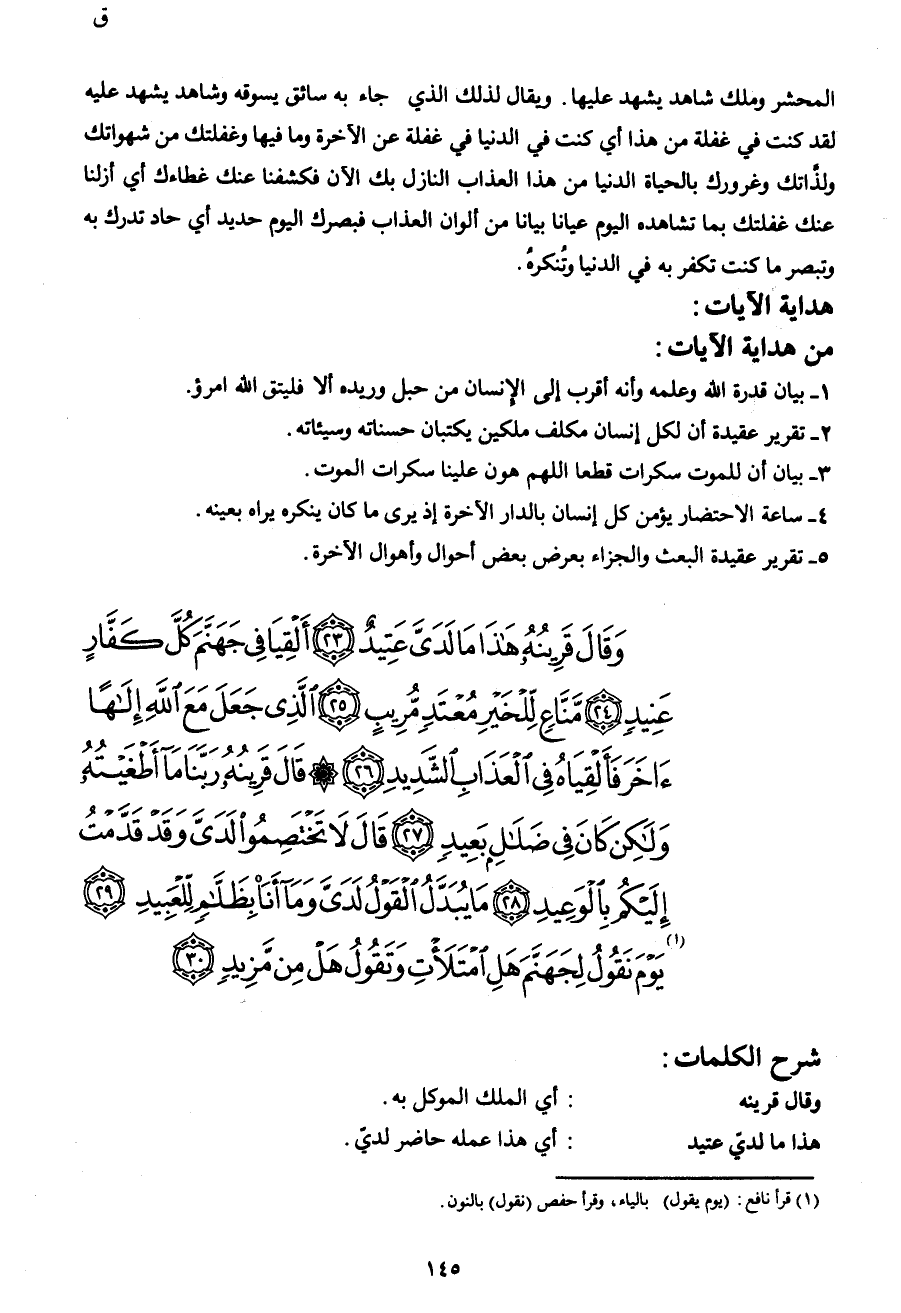 ق
المحشر وملك شاهد يشهد عليها. ويقال لذلك الذي جاء به سائق يسوقه وشاهد يشهد عليه
لقد كنت في غفلة من هذا أي كنت في الدنيا في غفلة عن الآخرة وما فيها وغفلتك من شهواتك
ولذَّاتك وغرورك بالحياة الدنيا من هذا العذاب النازل بك الآن فكشفنا عنك غطاءك أي أزلنا
عنك غفلتك بما تشاهده اليوم عيانا بيانا من ألوان العذاب فبصرك اليوم حديد أي حاد تدرك به
وتبصر ما كنت تكفر به في الدنيا وتُنكرهُ.
هداية الآيات:
من هداية الآيات:
١ـ بيان قدرة الله وعلمه وأنه أقرب إلى الإنسان من حبل وريده ألا فليتق الله امرؤ.
٢ـ تقرير عقيدة أن لكل إنسان مكلف ملكين يكتبان حسناته وسيئاته.
٣ـ بيان أن للموت سكرات قطعا اللهم هون علينا سكرات الموت.
٤ـ ساعة الاحتضار يؤمن كل إنسان بالدار الآخرة إذ يرى ما كان ينكره يراه بعينه.
٥ـ تقرير عقيدة البعث والجزاء بعرض بعض أحوال وأهوال الآخرة.
وَقَالَ قَرِينُهُۥ هَٰذَا مَا لَدَىَّ عَتِيدٌ ٢٣ أَلْقِيَا فِى جَهَنَّمَ كُلَّ كَفَّارٍ
عَنِيدٍ ٢٤ مَّنَّاعٍ لِّلْخَيْرِ مُعْتَدٍ مُّرِيبٍ ٢٥ ٱلَّذِى جَعَلَ مَعَ ٱللَّهِ إِلَٰهًا
ءَاخَرَ فَأَلْقِيَاهُ فِى ٱلْعَذَابِ ٱلشَّدِيدِ ٢٦ ۞ قَالَ قَرِينُهُۥ رَبَّنَا مَآ أَطْغَيْتُهُۥ
وَلَٰكِن كَانَ فِى ضَلَٰلٍۭ بَعِيدٍ ٢٧ قَالَ لَا تَخْتَصِمُوا۟ لَدَىَّ وَقَدْ قَدَّمْتُ
إِلَيْكُم بِٱلْوَعِيدِ ٢٨ مَا يُبَدَّلُ ٱلْقَوْلُ لَدَىَّ وَمَآ أَنَا۠ بِظَلَّٰمٍ لِّلْعَبِيدِ ٢٩
(١) يَوْمَ نَقُولُ لِجَهَنَّمَ هَلِ ٱمْتَلَأْتِ وَتَقُولُ هَلْ مِن مَّزِيدٍ ٣٠
شرح الكلمات:
وقال قرينه : أي الملك الموكل به.
هذا ما لديّ عتيد : أي هذا عمله حاضر لديّ.
(١) قرأ نافع: (يوم يقول) بالياء، وقرأ حفص (نقول) بالنون.
١٤٥